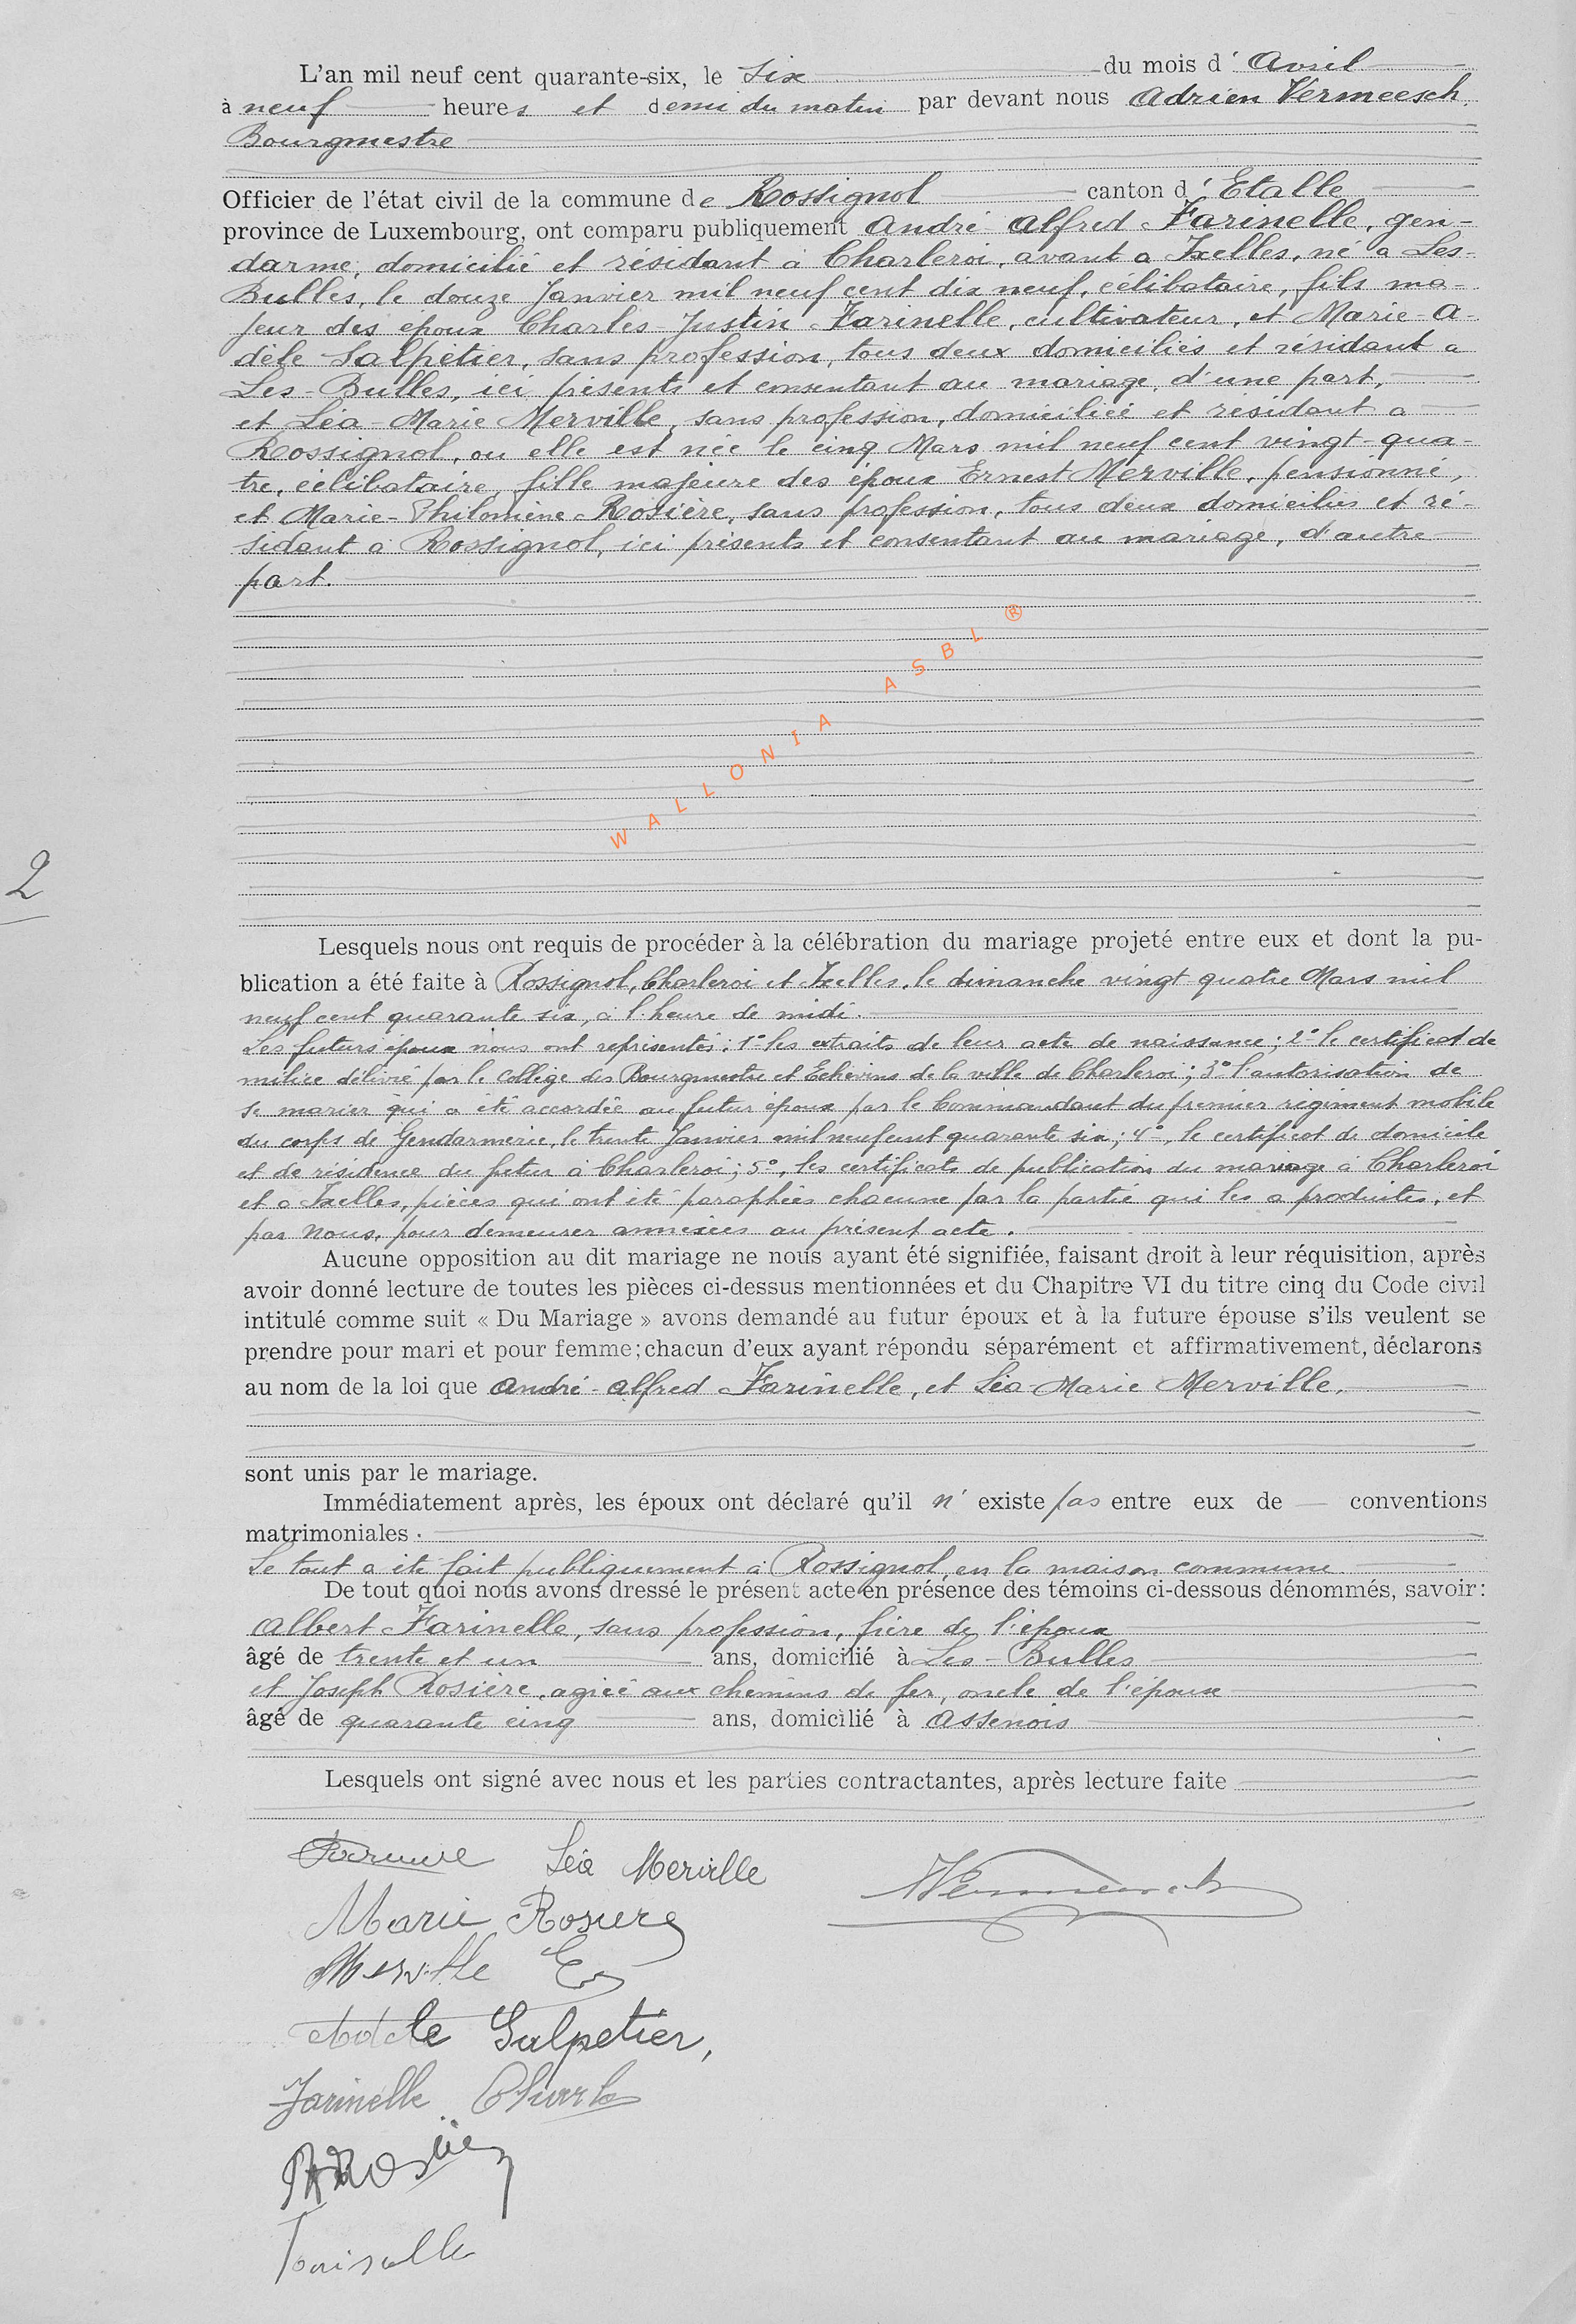 L'an mil neuf cent quarante-six, le six du mois d' Avril
à neuf heures et demi du matin par devant nous Adrien Vermeesch,
Bourgmestre
Officier de l'état civil de la commune de Rossignol canton d' Etalle
province de Luxembourg, ont comparu publiquement André-Alfred Farinelle, gen-
darme, domicilié et résidant à Charleroi, avant a Ixelles, né à Les-
Bulles, le douze Janvier mil neuf cent dix neuf, célibataire, fils ma-
jeur des époux Charles-Justin Farinelle, cultivateur, et Marie-A-
dèle Salpétier, sans profession, tous deux domiciliés et résidant a
Les-Bulles, ici présents et consentant au mariage, d'une part,
et Léa-Marie Merville, sans profession, domiciliée et résidant a
Rossignol, ou elle est née le cinq Mars mil neuf cent vingt-qua-
tre, célibataire, fille majeure des époux Ernest Merville, pensionné,
et Marie-Philomène Rosière, sans profession, tous deux domiciliés et ré-
sidant à Rossignol, ici présents et consentant au mariage, d'autre
part.
WALLONIA ASBL ®
2
Lesquels nous ont requis de procéder à la célébration du mariage projeté entre eux et dont la pu-
blication a été faite à Rossignol, Charleroi et Ixelles, le dimanche vingt quatre Mars mil
neuf cent quarante six, à l'heure de midi.
Les futurs époux nous ont représentés : 1° les extraits de leur acte de naissance ; 2° le certificat de
milice délivré par le Collège des Bourgmestre et Echevins de la ville de Charleroi ; 3° l'autorisation de
se marier qui a été accordée au futur époux par le Commandant du premier régiment mobile
du corps de Gendarmerie, le trente Janvier mil neuf cent quarante six ; 4°, le certificat de domicile
et de résidence du futur à Charleroi ; 5°, les certificats de publication du mariage à Charleroi
et a Ixelles, pièces qui ont été paraphées chacune par la partie qui les a produites, et
par nous, pour demeurer annexées au présent acte.
Aucune opposition au dit mariage ne nous ayant été signifiée, faisant droit à leur réquisition, après
avoir donné lecture de toutes les pièces ci-dessus mentionnées et du Chapitre VI du titre cinq du Code civil
intitulé comme suit « Du Mariage » avons demandé au futur époux et à la future épouse s'ils veulent se
prendre pour mari et pour femme; chacun d'eux ayant répondu séparément et affirmativement, déclarons
au nom de la loi que André-Alfred Farinelle, et Léa-Marie Merville,
sont unis par le mariage.
Immédiatement après, les époux ont déclaré qu'il n' existe pas entre eux de — conventions
matrimoniales.
Le tout a été fait publiquement à Rossignol, en la maison commune.
De tout quoi nous avons dressé le présent acte en présence des témoins ci-dessous dénommés, savoir:
Albert Farinelle, sans profession, frère de l'époux
âgé de trente et un ans, domicilié à Les-Bulles
et Joseph Rosière, agréé aux chemins de fer, oncle de l'épouse
âgé de quarante cinq ans, domicilié à Assenois
Lesquels ont signé avec nous et les parties contractantes, après lecture faite
Léa Merville
Marie Rosière
Merville E
Adèle Salpetier,
Farinelle Charles